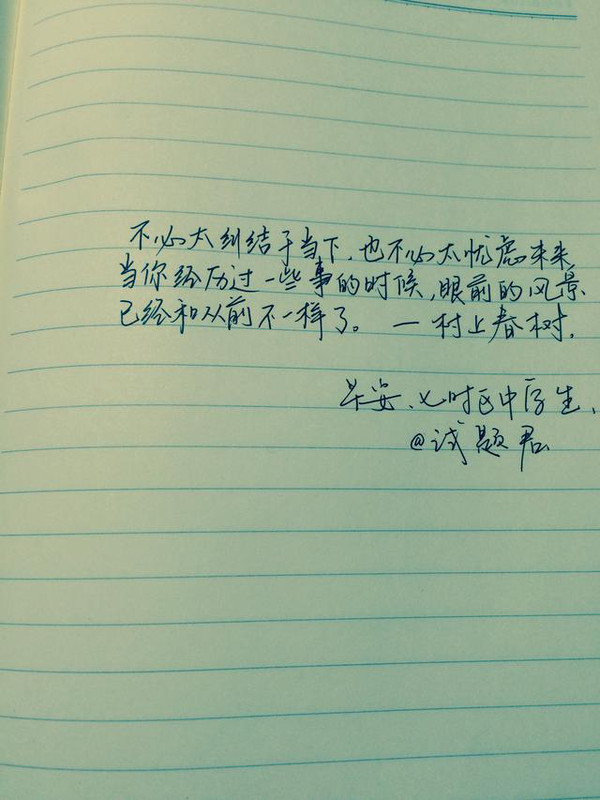 不必太纠结于当下，也不必太忧虑未来
当你经历过一些事的时候，眼前的风景
已经和从前不一样了。 —村上春树.
早安、七时区中学生、
@试题君